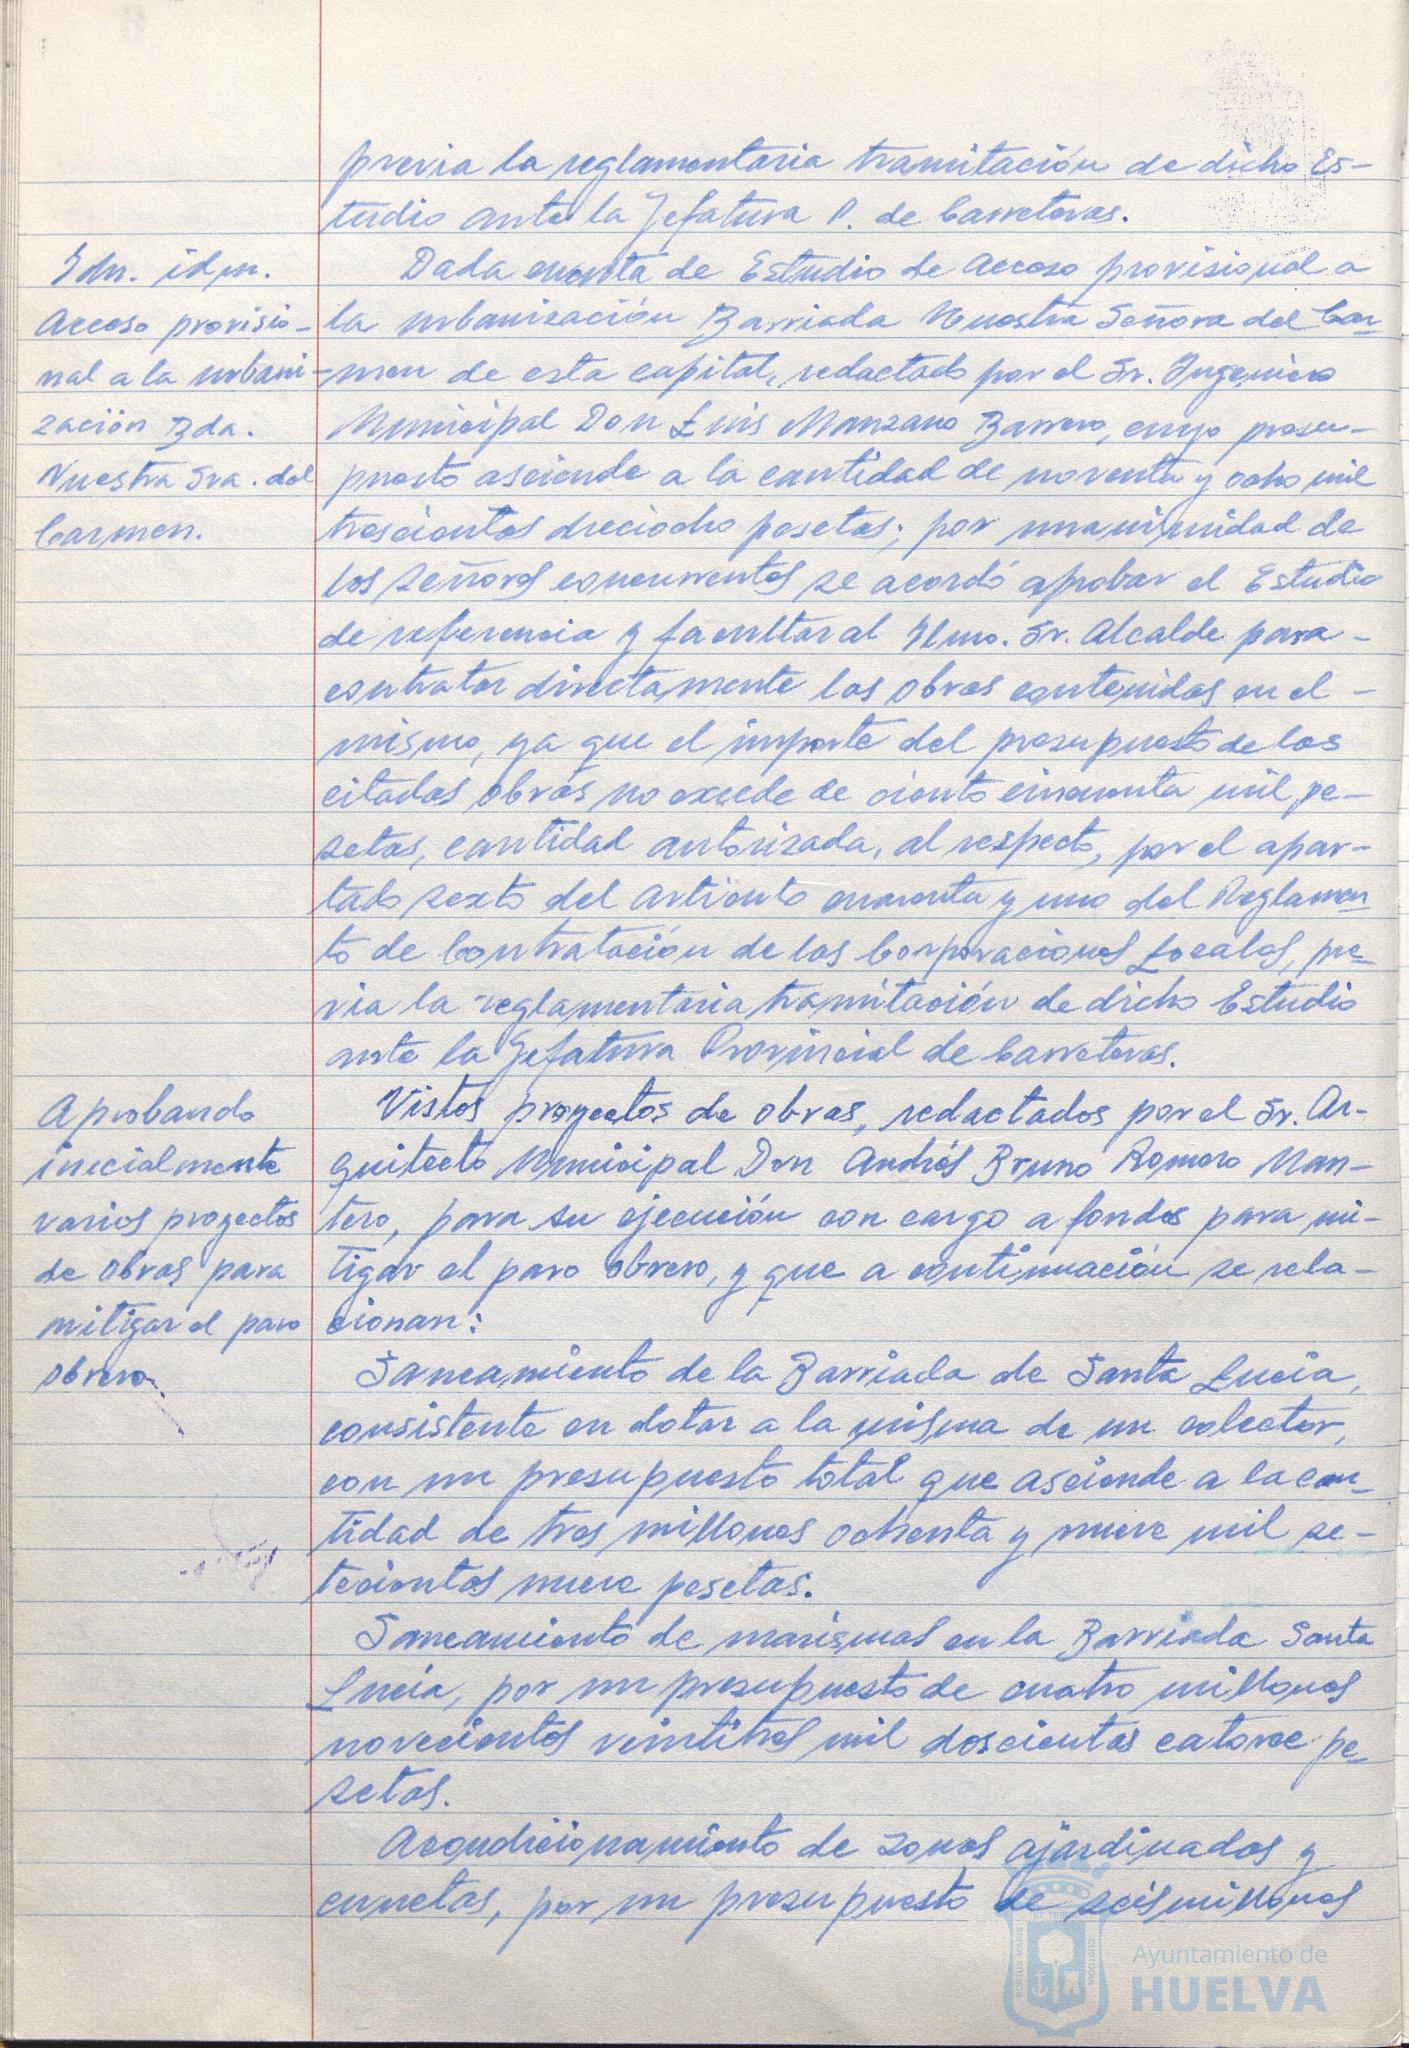 previa la reglamentaria tramitación de dicho Es-
tudio ante la Jefatura P. de Carreteras.
Idn. idn.
Acceso provisio-
nal a la urbani-
zación Bda.
Nuestra Sra. del
Carmen.
Dada cuenta de Estudio de Acceso provisional a
la urbanización Barriada Nuestra Señora del Car-
men de esta capital, redactado por el Sr. Ingeniero
Municipal Don Luis Manzano Barrero, cuyo presu-
puesto asciende a la cantidad de noventa y ocho mil
trescientas dieciocho pesetas; por unanimidad de
los señores concurrentes se acordó aprobar el Estudio
de referencia y facultar al Ilmo. Sr. Alcalde para -
contratar directamente las obras contenidas en el -
mismo, ya que el importe del presupuesto de las
citadas obras no excede de ciento cincuenta mil pe-
setas, cantidad autorizada, al respecto, por el apar-
tado sexto del artículo cuarenta y uno del Reglamen-
to de Contratación de las Corporaciones Locales, pre-
via la reglamentaria tramitación de dicho Estudio
ante la Jefatura Provincial de Carreteras.
Aprobando
inicialmente
varios proyectos
de obras para
mitigar el paro
obrero.
Vistos proyectos de obras, redactados por el Sr. Ar-
quitecto Municipal Don Andrés Bruno Romero Man-
tero, para su ejecución con cargo a fondos para mi-
tigar el paro obrero, y que a continuación se rela-
cionan:
Saneamiento de la Barriada de Santa Lucia,
consistente en dotar a la misma de un colector,
con un presupuesto total que asciende a la can-
tidad de tres millones ochenta y nueve mil se-
tecientas nueve pesetas.
Saneamiento de marismas en la Barriada Santa
Lucía, por un presupuesto de cuatro millones
novecientos veintitres mil doscientas catorce pe-
setas.
Acondicionamiento de zonas ajardinadas y
cunetas, por un presupuesto de seis millones
Ayuntamiento de
HUELVA